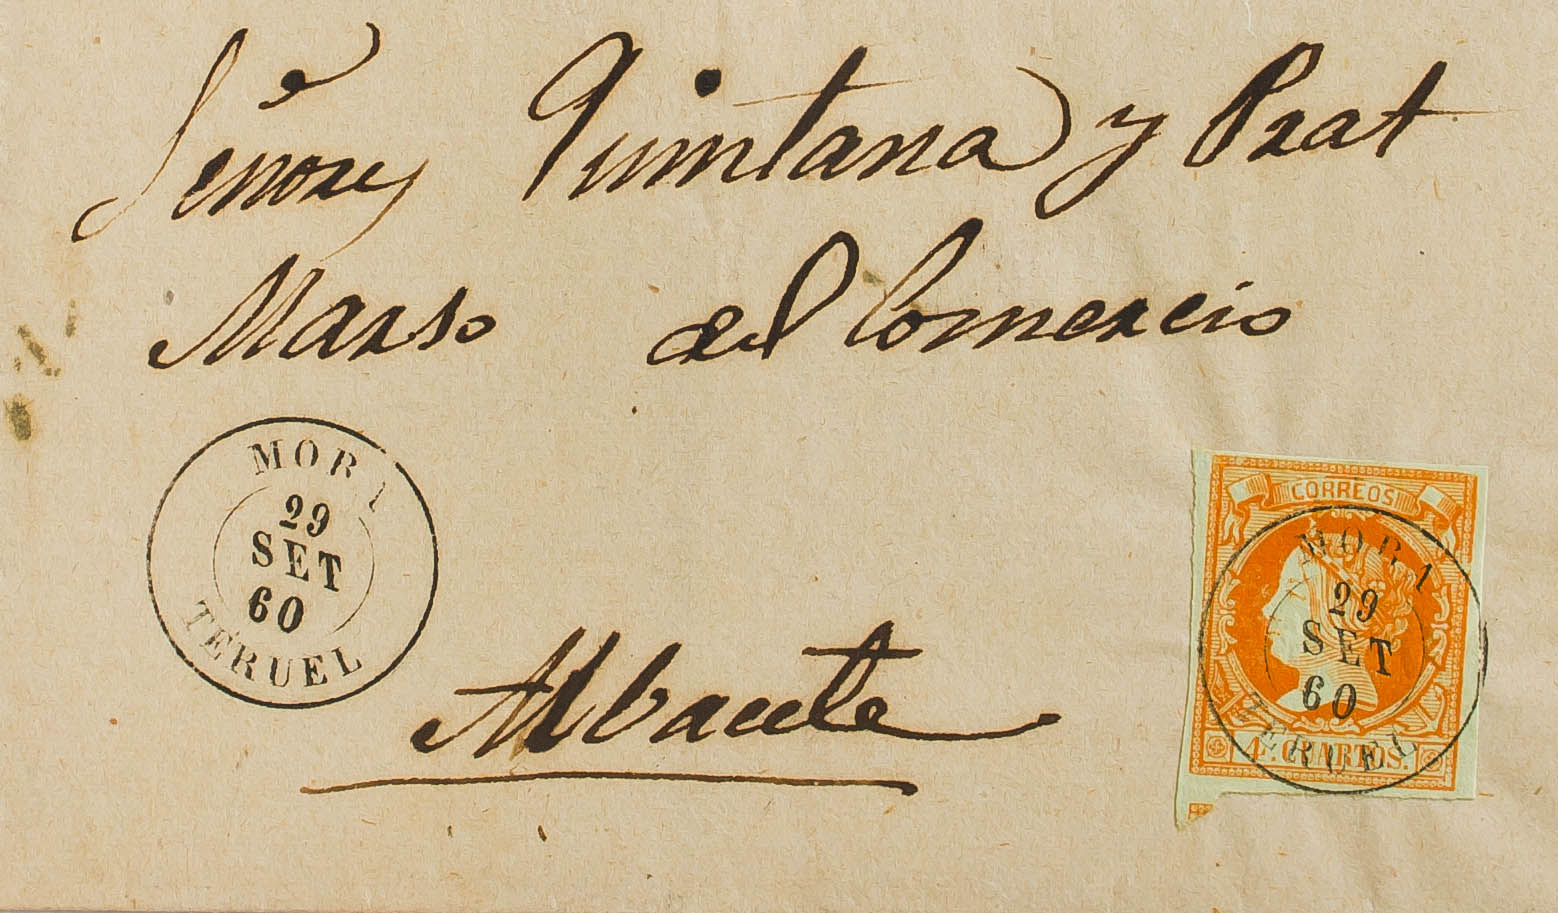 Señores Quintana y Prat
Marso del Comercio
MORA
29
SET
60
TERUEL
CORREOS
MORA
29
SET
60
TERUEL
4 CUARTOS.